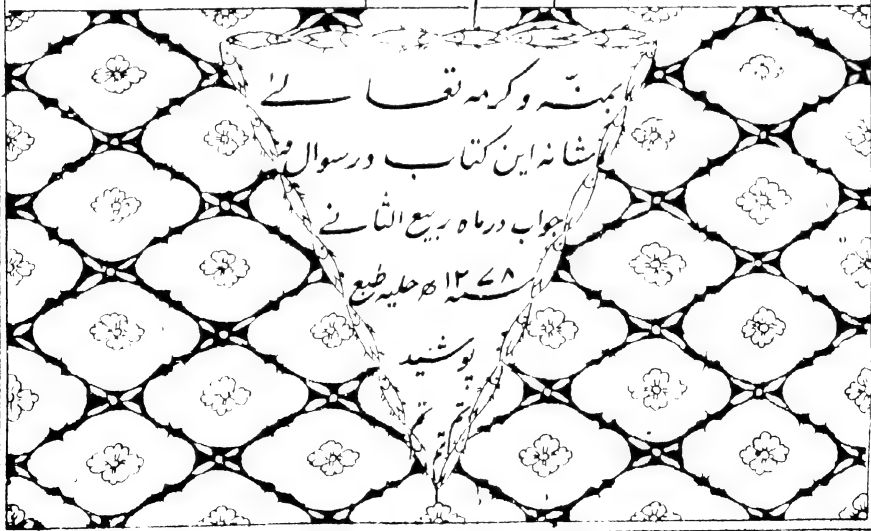 بمنّه و کرمه تعالے
شانه این کتاب در سوال و
جواب در ماه ربیع الثانے
سنه ۱۲۷۸ ھ حلیه طبع
پوشید
تم تم